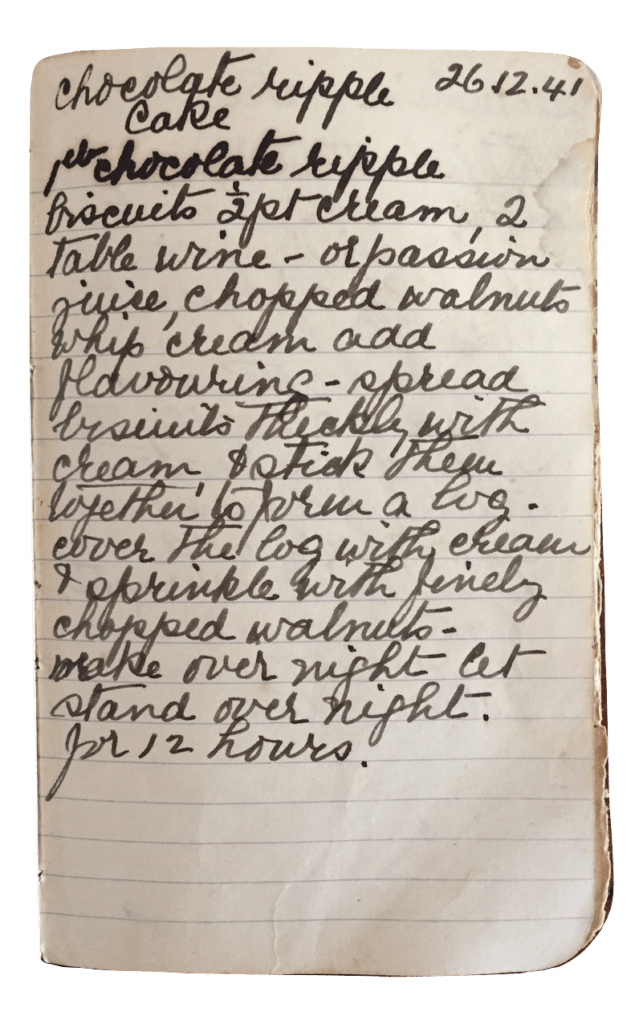 chocolate ripple 26.12.41
Cake
1 lb chocolate ripple
biscuits ½ pt cream, 2
table wine - or passion
juice, chopped walnuts
whip cream add
flavouring - spread
biscuits thickly with
cream & stick them
together to form a log.
cover the log with cream
& sprinkle with finely
chopped walnuts -
make over night let
stand over night.
for 12 hours.